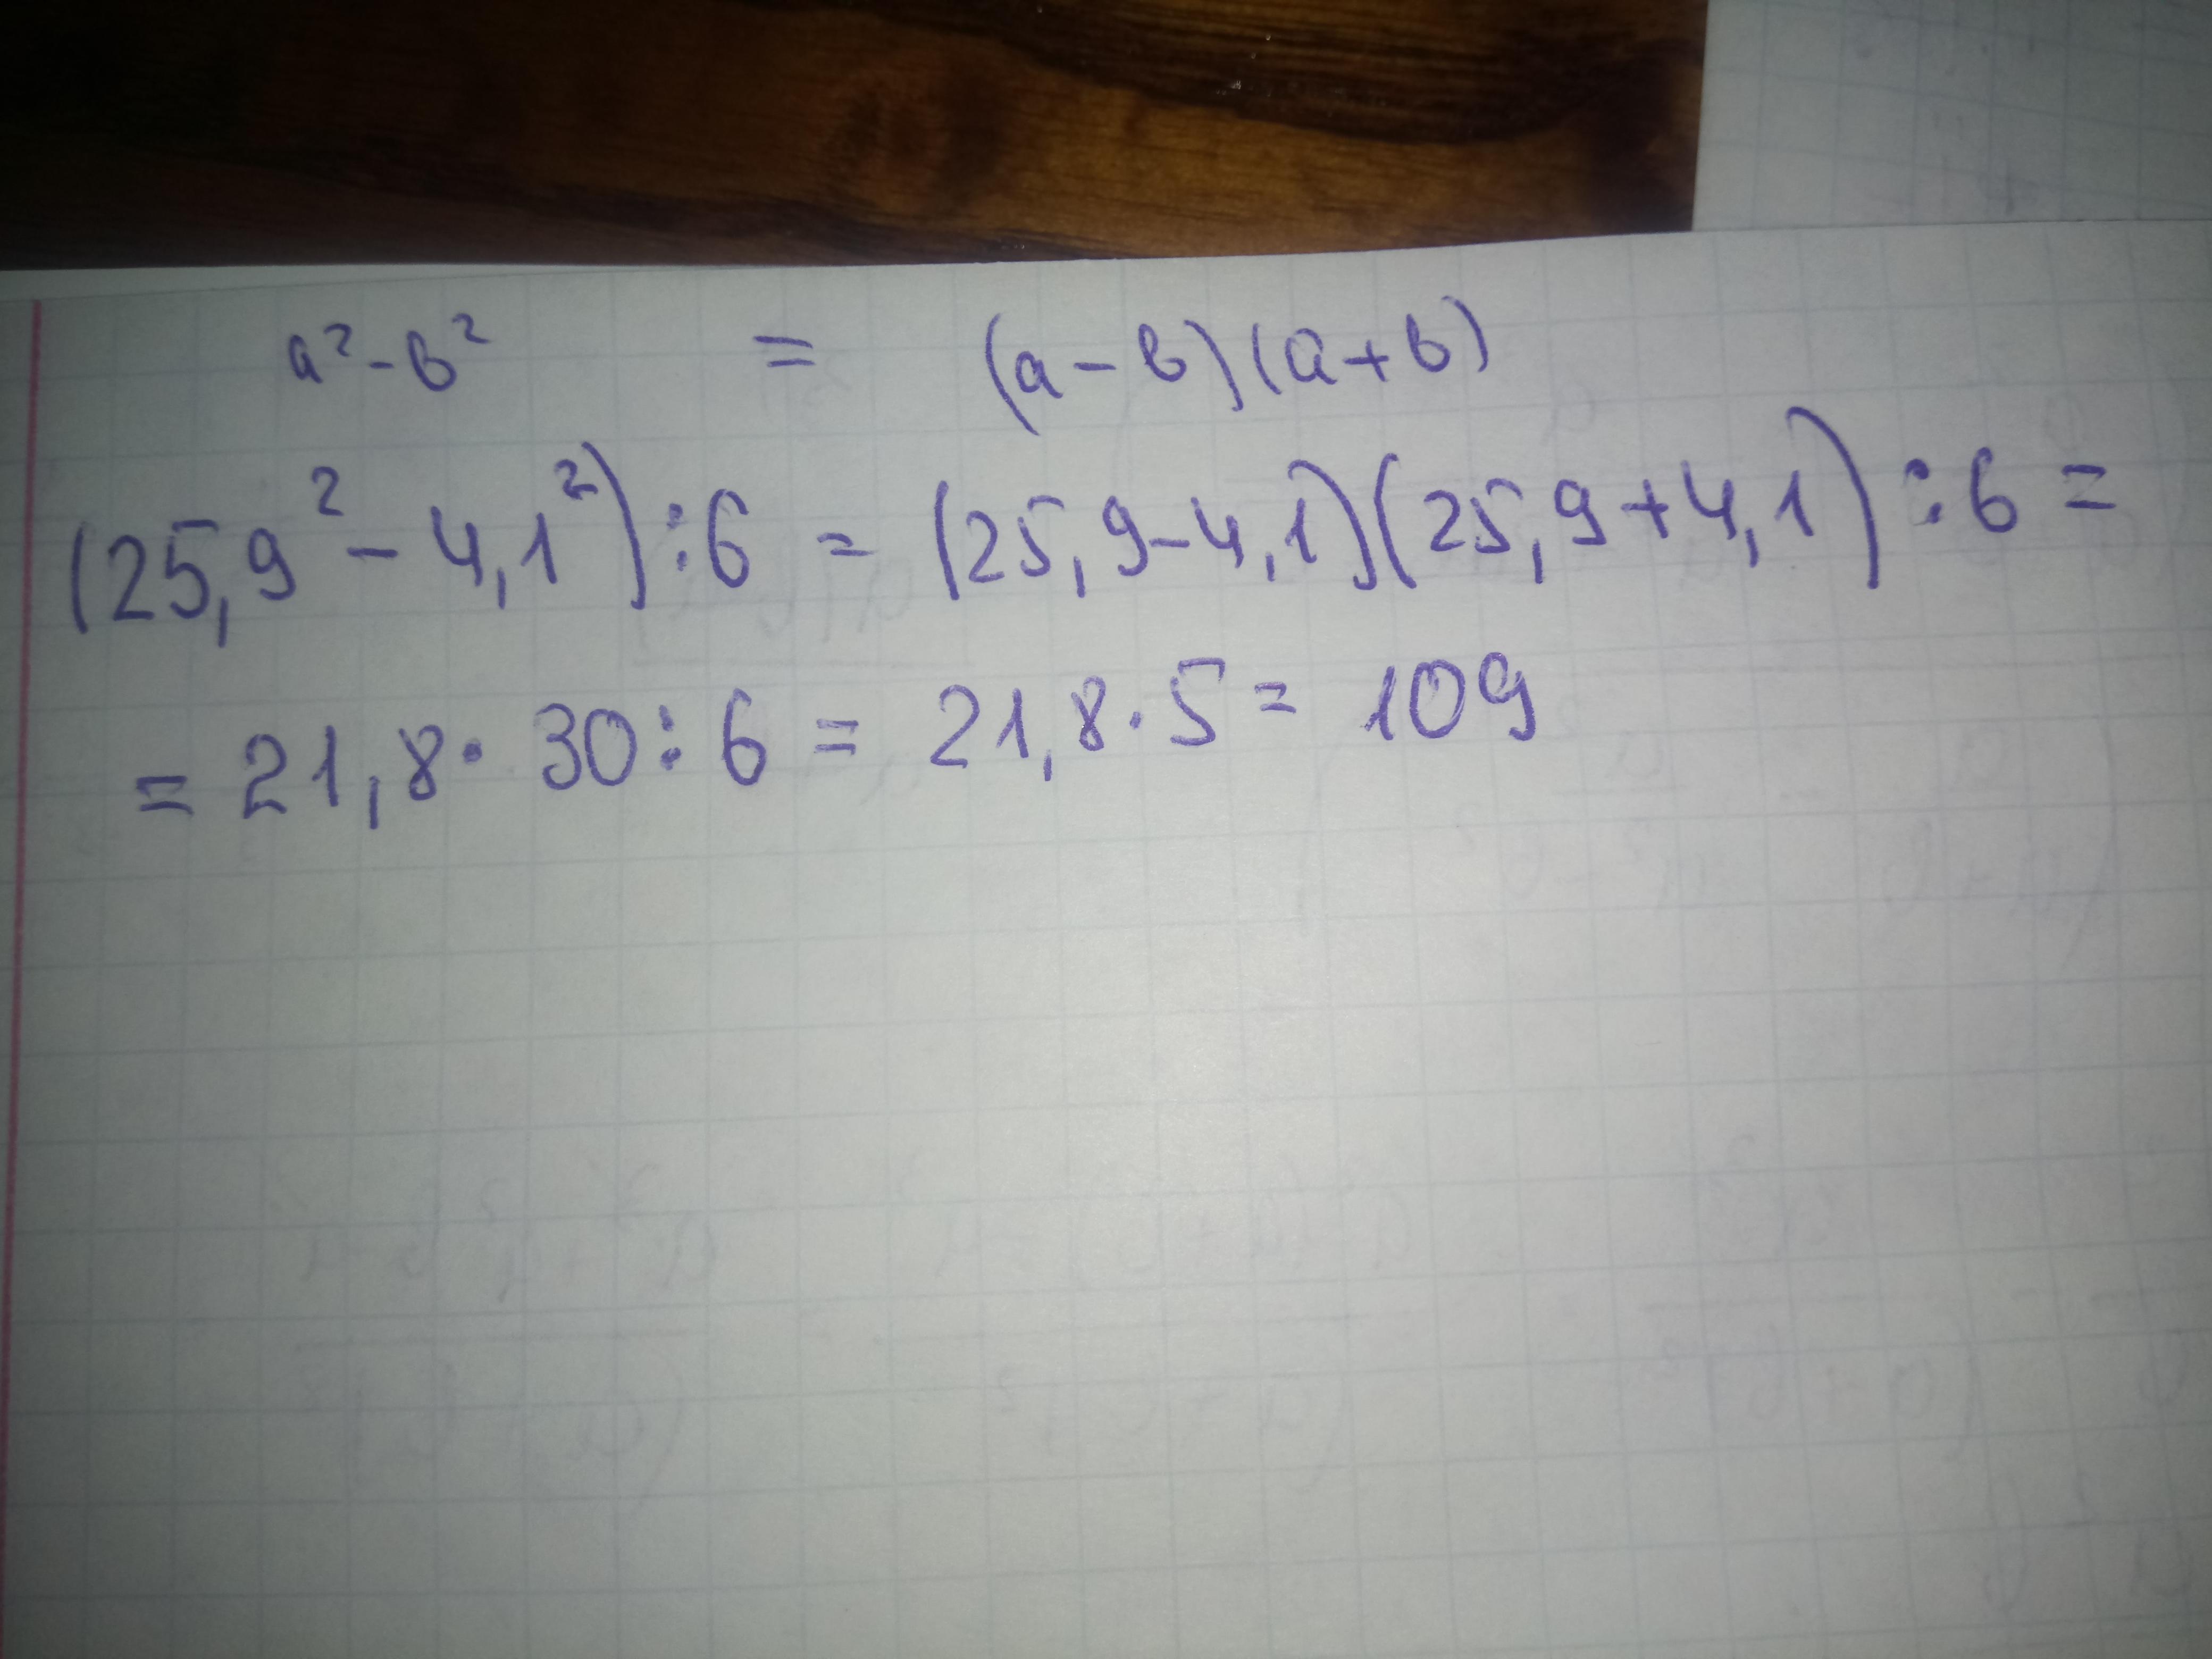 a² - b² = (a - b)(a + b)
(25,9² - 4,1²) : 6 = (25,9 - 4,1)(25,9 + 4,1) : 6 =
= 21,8 · 30 : 6 = 21,8 · 5 = 109